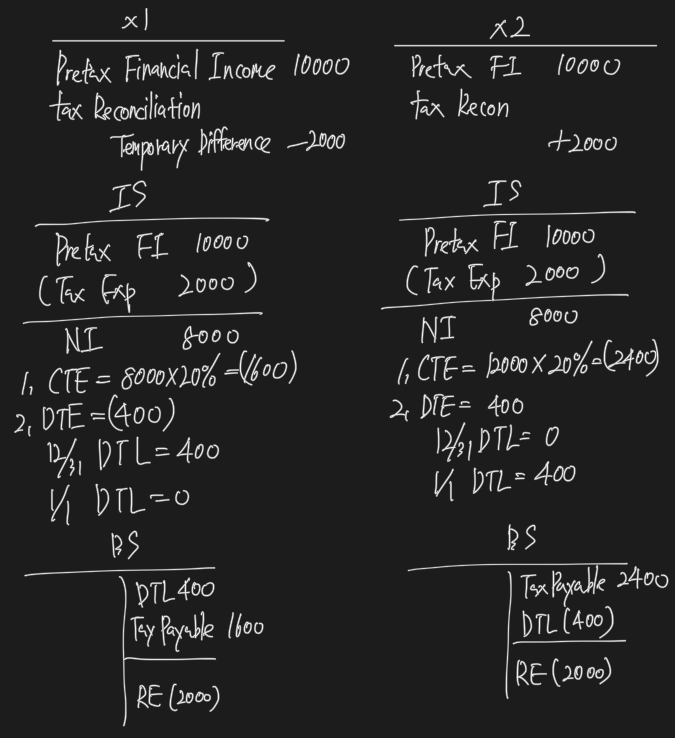 x1
Pretax Financial Income 10000
tax Reconciliation
Temporary Difference -2000
IS
Pretax FI 10000
(Tax Exp 2000)
NI 8000
1, CTE = 8000×20% = (1600)
2, DTE = (400)
12/31, DTL = 400
1/1 DTL = 0
BS
DTL 400
Tax Payable 1600
RE (2000)
x2
Pretax FI 10000
tax Recon
+2000
IS
Pretax FI 10000
(Tax Exp 2000)
NI 8000
1, CTE = 12000×20% = (2400)
2, DTE = 400
12/31, DTL = 0
1/1 DTL = 400
BS
Tax Payable 2400
DTL (400)
RE (2000)